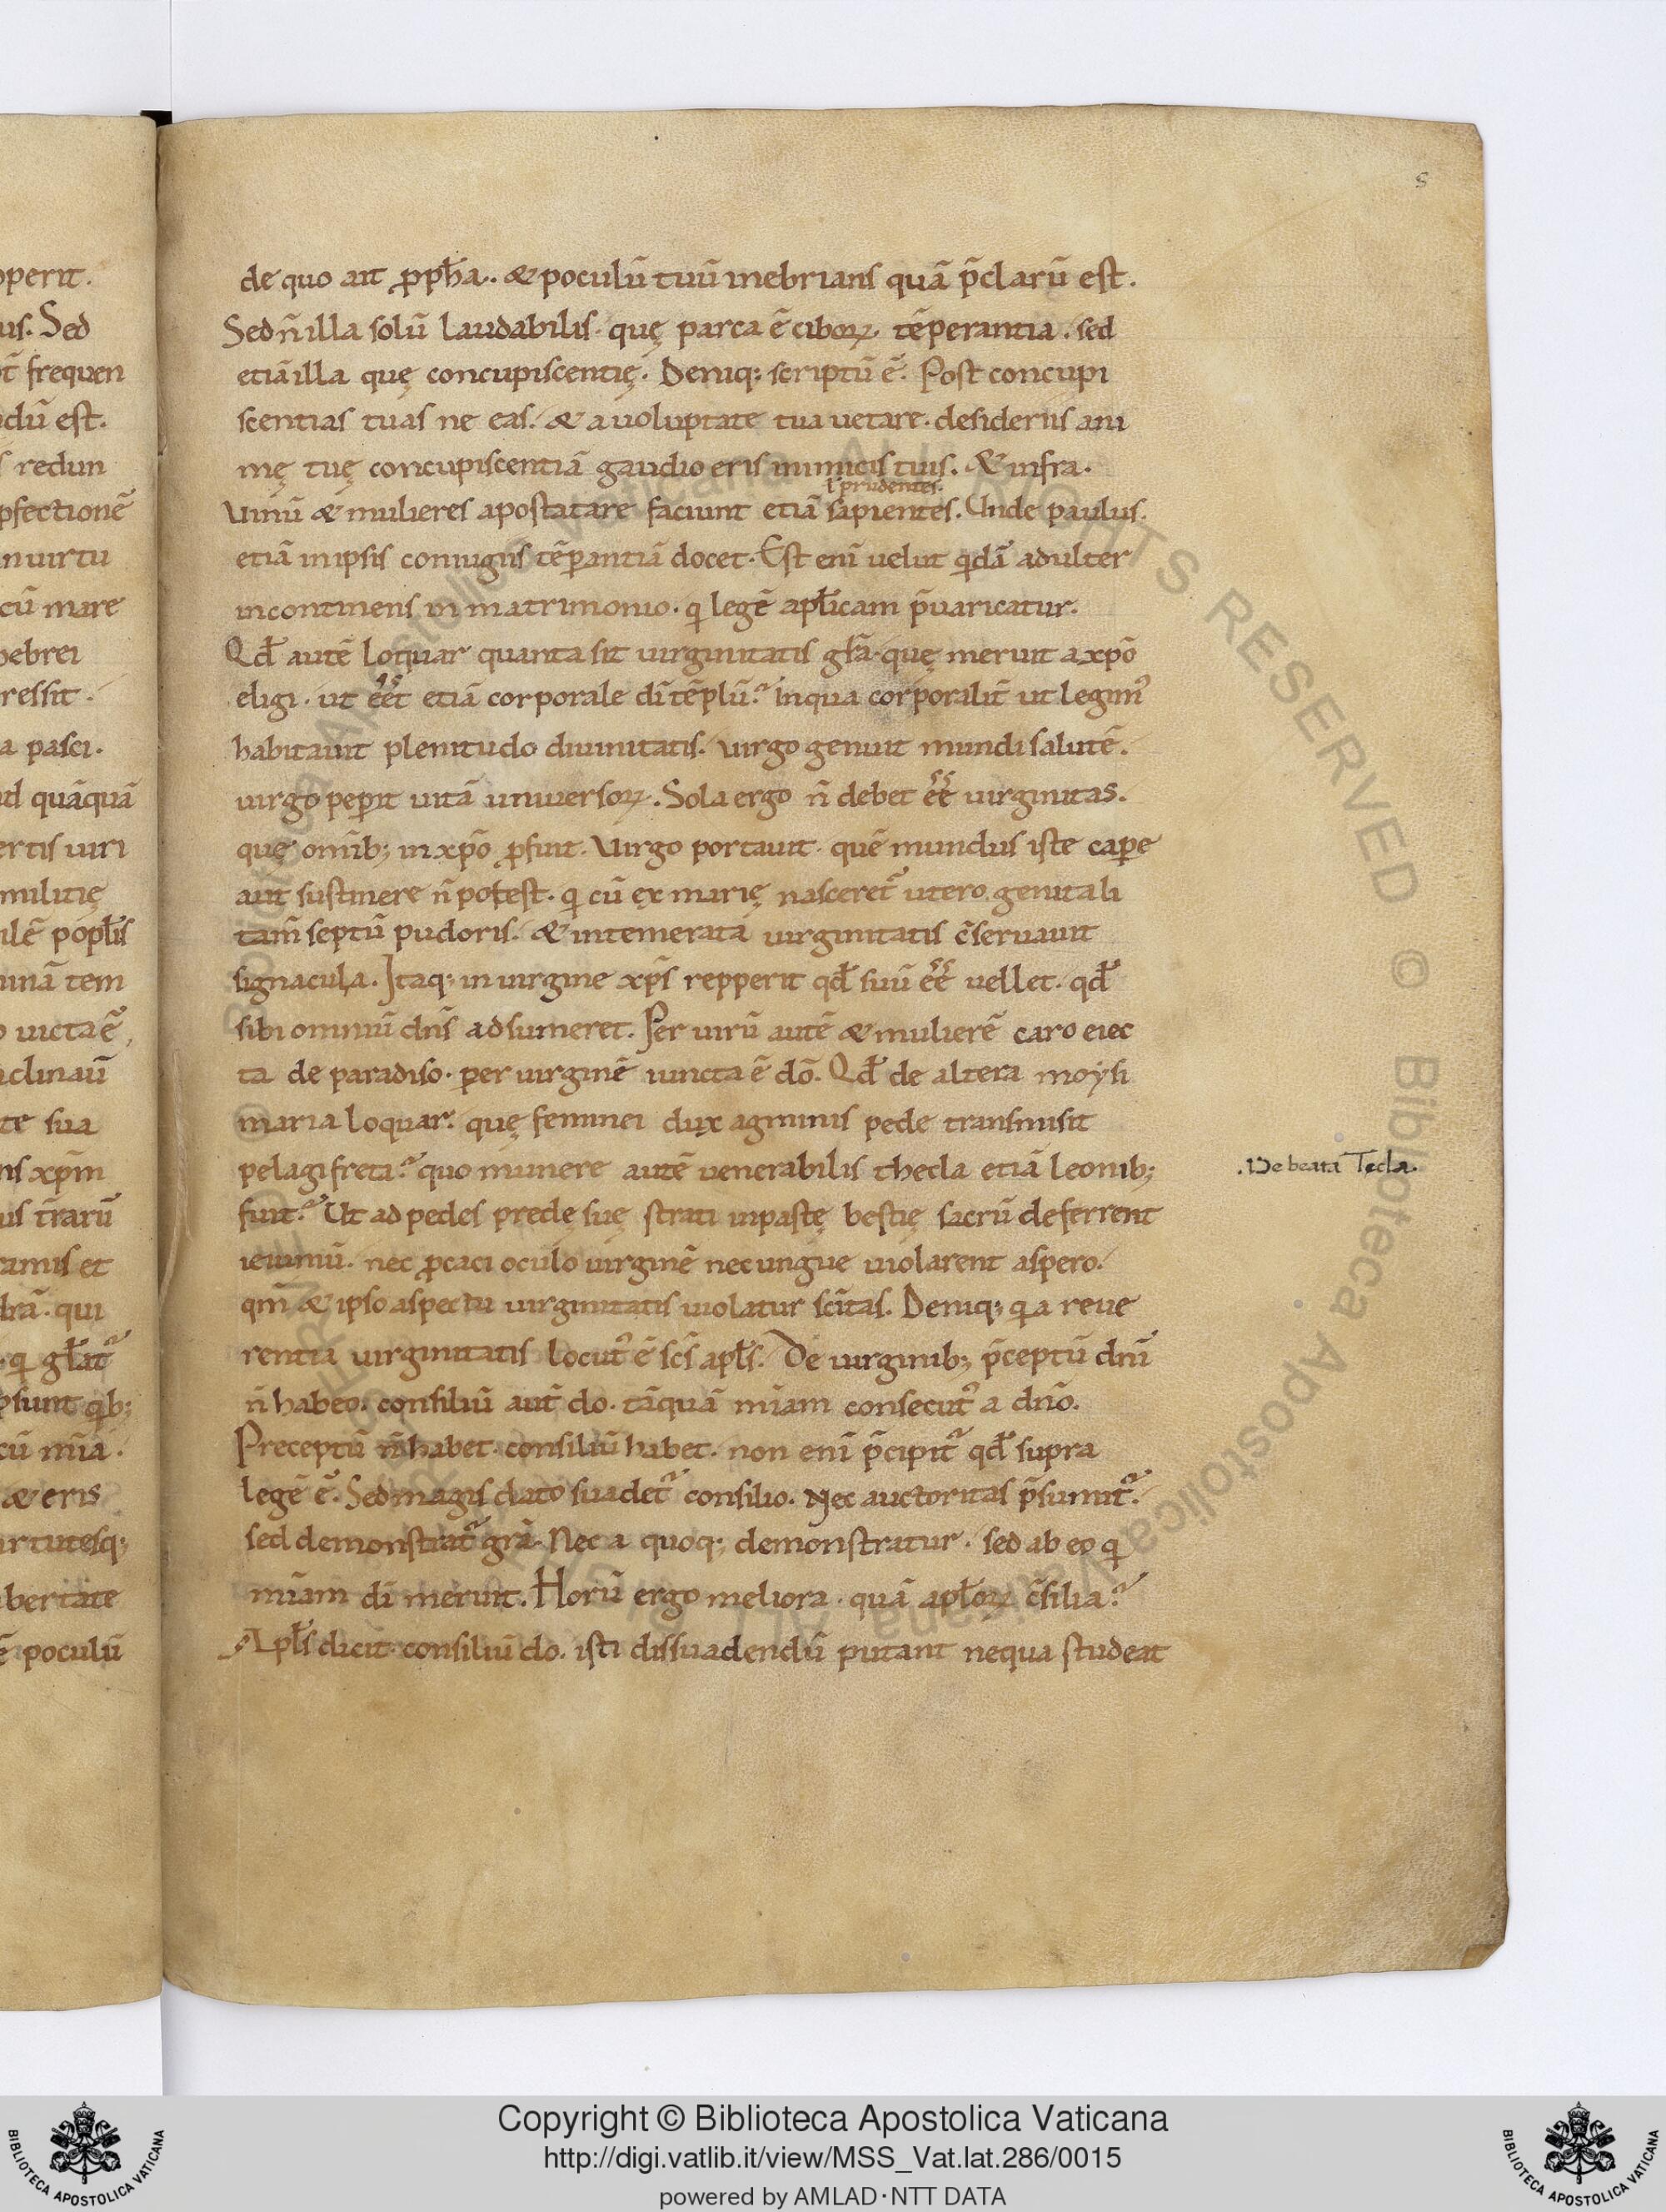 operit.
us. Sed
t̄ frequen
dū est.
s redun
pfectionē
inuirtu
cū mare
hebrei
ressit.
a pasci.
ud quāquā
ertis uiri
militię
ilē popl̄is
minā tem
o uicta ē,
clinau̅
te sua
nis xp̄m
us t̄rarū
ramis et
drā. qui
. q gl̄at᷑
ꝓsunt qb;
cū m̄ia.
& eris
irtutesq;
bertate
ē poculū
8
de quo ait ꝓph̄a.. & poculū tuū inebrians quā p̄clarū est.
Sed n̄ illa solū laudabilis. quę parca ē ciboꝝ. tēperantia. sed
etiā illa quę concupiscentię. Deniq; scriptū ē. Post concupi
scentias tuas ne eas. & a uoluptate tua uetare. desideriis ani
mę tuę concupiscentiā gaudio eris inimicis tuis. & infra.
ł prudentes.
Uinū & mulieres apostatare faciunt etiā sapientes. Unde paulus.
etiā inipsis coniugiis tēꝑantiā docet. Est eni̅ uelut qdā adulter
incontinens in matrimonio. q legē apl̄icam p̄uaricatur.
Qd̄ autē loquar quanta sit uirginitatis gl̄a. quę meruit a xp̄o
eligi. ut ēēt etiā corporale dī tēplū? Inqua corporalit̄ ut legim᷒
habitauit plenitudo diuinitatis. uirgo genuit mundi salutē.
uirgo peꝑit uitā uniuersoꝝ. Sola ergo n̄ debet ēē uirginitas.
que om̄ib; in xp̄o ꝓfuit. Uirgo portauit. quē mundus iste caꝑe
aut sustinere n̄ potest. q cū ex marię nasceret᷑ utero. genitali
tam̄ septū pudoris. & intemerata uirginitatis c̄seruauit
signacula. Itaq; in uirgine xp̄s repperit qd̄ suū ēē uellet. qd̄
sibi omniū dn̄s adsumeret. Per uirū autē & mulierē caro eiec
ta de paradiso. per uirginē iuncta ē dō. Qd̄ de altera moysi
maria loquar. quę feminei dux agminis pede transmisit
pelagi freta? quo munere autē uenerabilis thecla etiā leonib;
.De beata Tecla.
fuit? Ut ad pedes predę suę strati inpastę bestię sacrū deferrent
ieiuniū. nec ꝓcaci oculo uirginē nec ungue uiolarent aspero.
qm̄ & ipso aspectu uirginitatis uiolatur sc̄itas. Deniq; q a reue
rentia uirginitatis locut᷒ ē sc̄s apl̄s. De uirginib; p̄ceptū dn̄i
n̄ habeo. consiliū aut̄ do. tāquā m̄iam consecut᷒ a dn̄o.
Preceptū n̄ habet. consiliū habet. non eni̅ p̄cipit᷑ qd̄ supra
legē ē. Sed magis dato suadet᷑ consilio. Nec auctoritas p̄sumit᷑.
sed demonstrat᷑ gr̄a. Nec a quoq; demonstratur. sed ab eo q
m̄iam dī meruit. Horū ergo meliora. quā apl̄oꝝ c̄silia?
Apl̄s dicit. consiliū do. isti dissuadendū putant nequa studeat
Copyright © Biblioteca Apostolica Vaticana
http://digi.vatlib.it/view/MSS_Vat.lat.286/0015
powered by AMLAD·NTT DATA
BIBLIOTECA APOSTOLICA VATICANA
BIBLIOTECA APOSTOLICA VATICANA